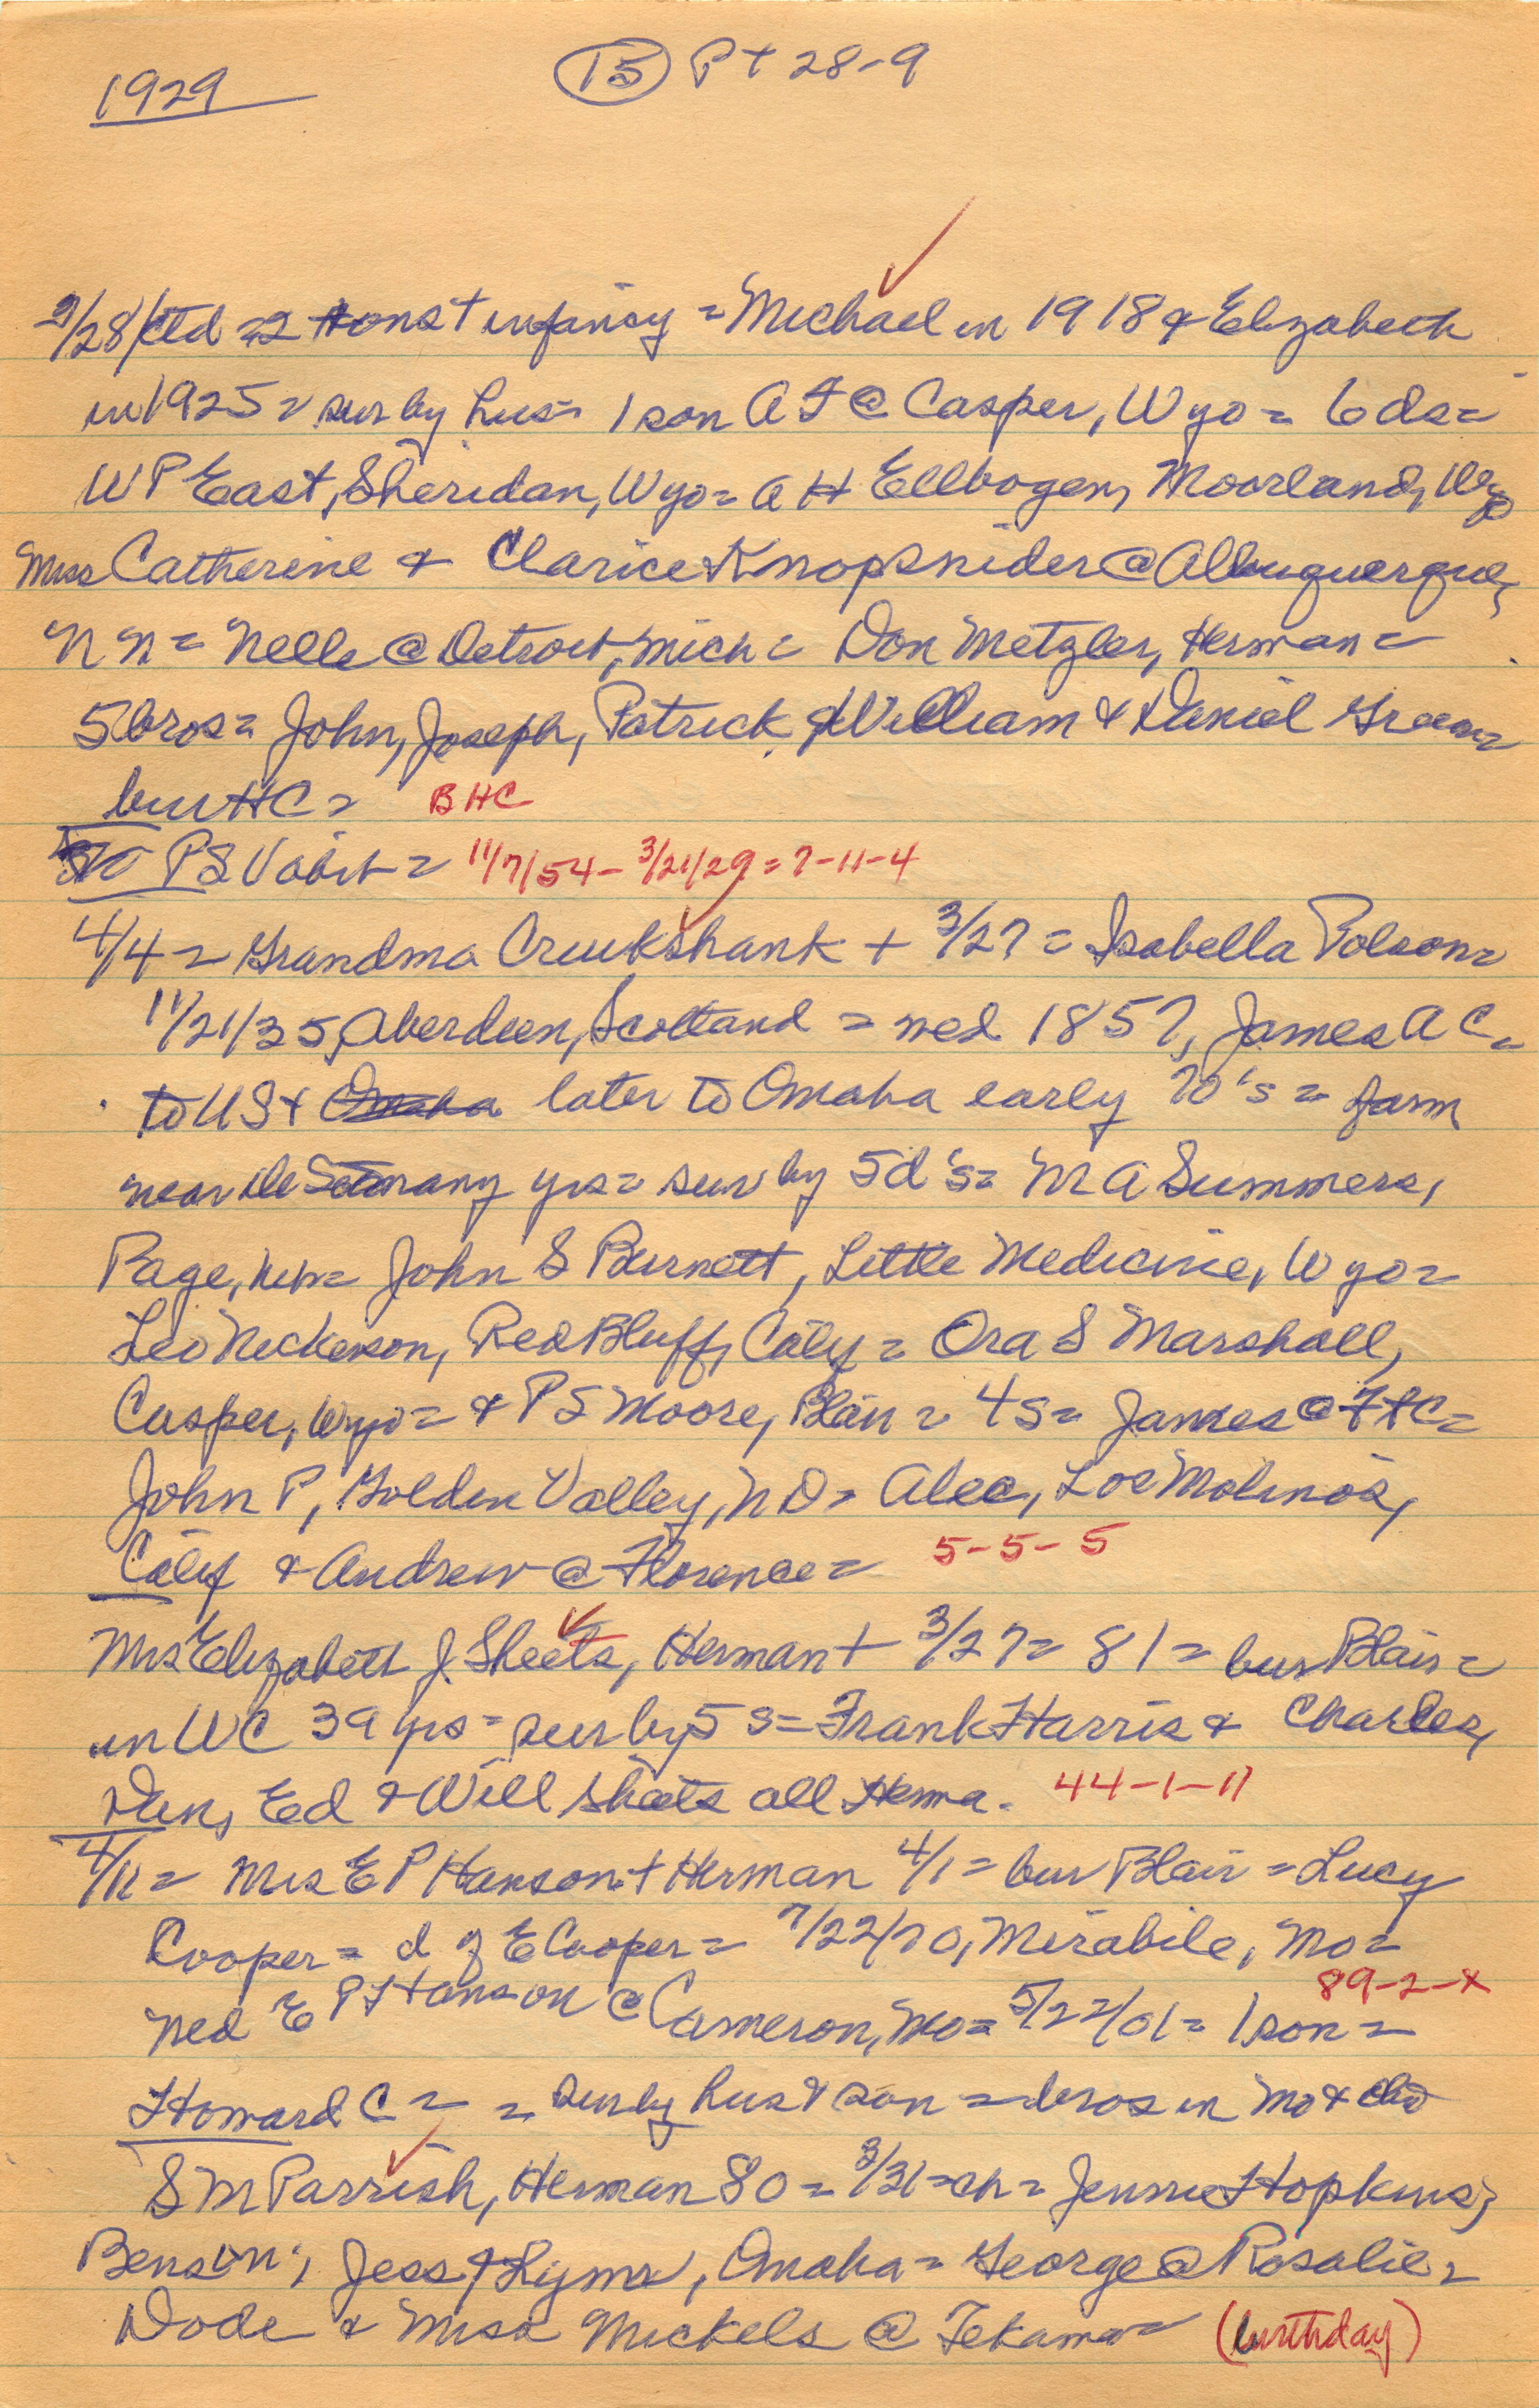 1929
(15) P + 28-9
/28/ctd = 2 + infancy = Michael in 1918 & Elizabeth
in 1925 = sur by hus = 1 son A F @ Casper, Wyo = 6 ds =
W P East, Sheridan, Wyo = A H Ellbogen, Moorland, Wyo
Miss Catherine & Clarice Knopsnider @ Albuquerque,
N M = Nelle @ Detroit, Mich = Don Metzler, Herman =
5 bros = John, Joseph, Patrick, William & Daniel Green =
bur HC = BHC
P S = 11/7/54 - 3/21/29 = 7-11-4
4/4 = Grandma Cruikshank + 3/27 = Isabella Polson =
11/21/35, Aberdeen, Scotland = med 1857, James A C =
to US & Omaha later to Omaha early 70's = farm
near De Soto many yrs = sur by 5 d's = M A Summers,
Page, Neb = John S Burnett, Little Medicine, Wyo =
Leo Nickerson, Red Bluff, Calif = Ora S Marshall,
Casper, Wyo = & P S Moore, Blair = 4 s = James @ Ft C =
John P, Golden Valley, N D = Alec, Los Molinos,
Calif & Andrew @ Florence = 5-5-5
Mrs Elizabeth J. Sheets, Herman + 3/27 = 81 = bur Blair =
in WC 39 yrs = sur by 5 s = Frank Harris & Charles,
Dan, Ed & Will Sheets all Herma. 44-1-11
4/11 = Mrs E P Hanson + Herman 4/1 = bur Blair = Lucy
Cooper = d of E Cooper = 7/22/70, Mirabile, Mo =
89-2-x
med E P Hanson @ Cameron, Mo = 5/22/01 = 1 son =
Howard C = = sur by hus & son = bros in Mo &
S M Parrish, Herman 80 = 3/31 = ch = Jennie Hopkins,
Benson; Jess & Lyma, Omaha = George @ Rosalie =
Dode & Miss Mickels @ Tekama = (birthday)